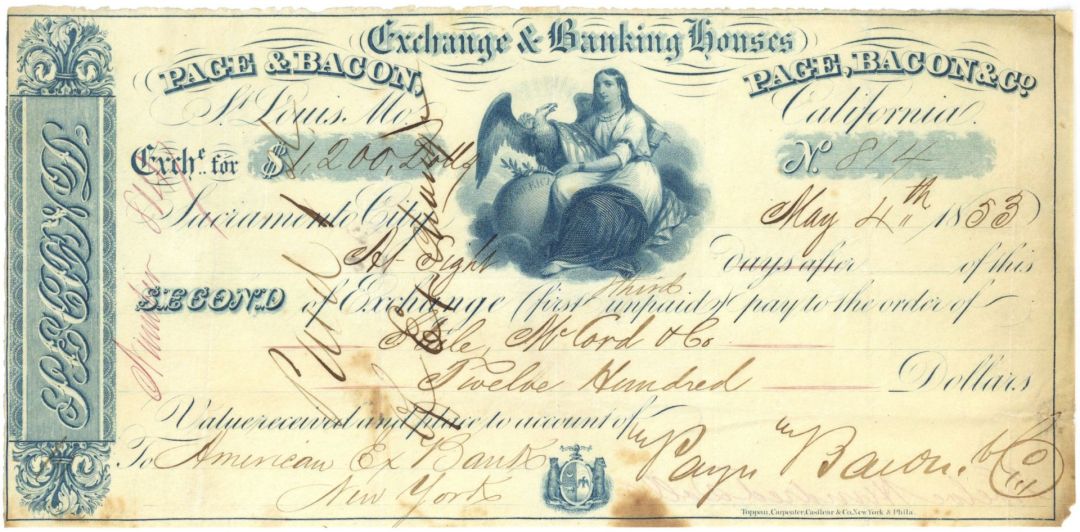 Exchange & Banking Houses
PAGE & BACON,
PAGE, BACON & Co.
St. Louis, Mo.
California.
Exche. for $ 1,200, Dolls
No. 814
Sacramento City
May 4th 1853
At Sight days after of this
SECOND of Exchange (first & third unpaid) pay to the order of
McCord & Co
Twelve Hundred Dollars
Value received and place to account of
To American Ex Bank
New York
Page Bacon & Co
Paid
SECOND
Toppan, Carpenter, Casilear & Co. New York & Phila.